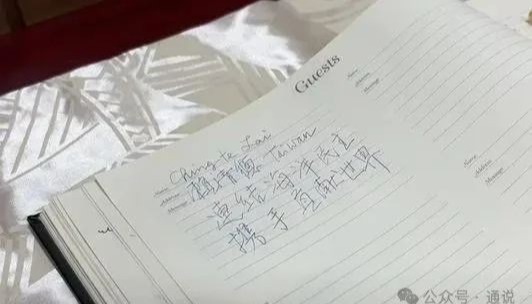 Guests
Name
Ching-te Lai
Address
賴清德 Taiwan
Message
連結海洋民主
攜手貢獻世界
Name
Address
Message
Name
Address
Message
公众号 · 通说